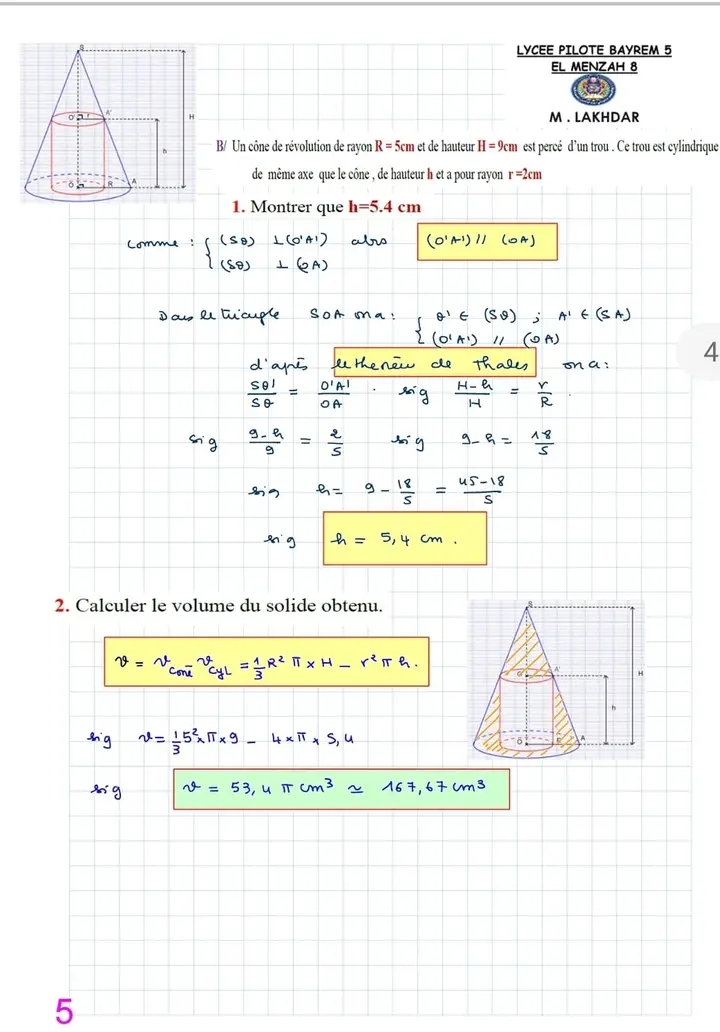 LYCEE PILOTE BAYREM 5
EL MENZAH 8
M . LAKHDAR
B/ Un cône de révolution de rayon R = 5cm et de hauteur H = 9cm est percé d'un trou . Ce trou est cylindrique
de même axe que le cône , de hauteur h et a pour rayon r =2cm
1. Montrer que h=5.4 cm
comme : { (SO) ⊥ (O'A') alors (O'A') // (OA)
(SO) ⊥ (OA)
Dans le triangle SOA on a : { O' ∈ (SO) ; A' ∈ (SA)
(O'A') // (OA)
d'après le théorème de Thales on a :
SO'/SO = O'A'/OA . sig H-h/H = r/R .
sig 9-h/9 = 2/5 sig 9-h = 18/5
sig h = 9 - 18/5 = 45-18/5
sig h = 5,4 cm .
2. Calculer le volume du solide obtenu.
v = v cone - v cyL = 1/3 R² π × H - r² π h .
sig v = 1/3 5² × π × 9 - 4 × π × 5,4
sig v = 53,4 π cm³ ≃ 167,67 cm³
S
O'
r
A'
H
h
O
R
A
S
O'
A'
H
h
O
R
A
4
5